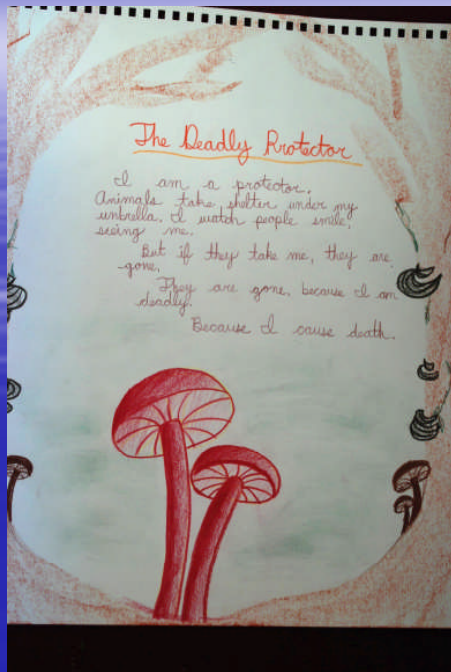 The Deadly Protector
I am a protector.
Animals take shelter under my
umbrella. I watch people smile,
seeing me.
But if they take me, they are
gone.
They are gone, because I am
deadly.
Because I cause death.